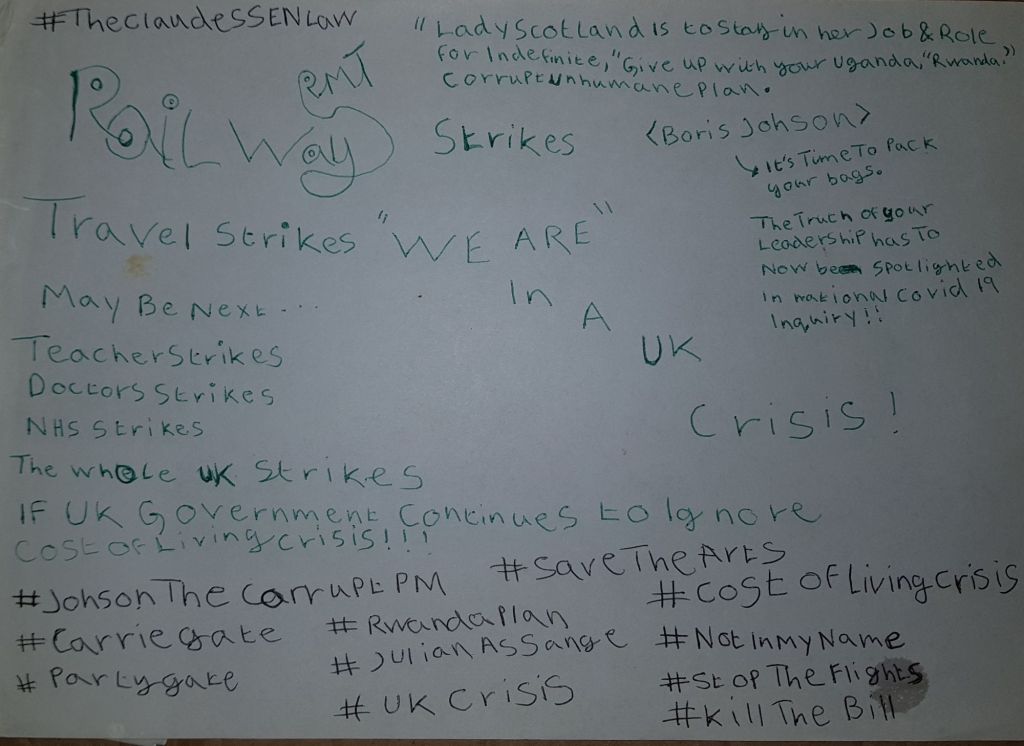 #TheclaudesSENLaw
"Lady Scotland is to stay in her Job & Role
for Indefinite, "Give up with your Uganda, "Rwanda?")
Corrupt unhumane plan.
RailWay
RMT
Strikes
<Boris Johson>
It's Time To Pack
your bags.
The Truth of your
Leadership has To
Now be spotlighted
in national Covid 19
Inquiry!!
Travel Strikes "WE ARE"
In
A
UK
Crisis!
May Be Next...
Teacher Strikes
Doctors Strikes
NHS Strikes
The whole UK Strikes
IF UK Government Continues to Ignore
Cost of Living crisis!!!
#SaveTheArts
#JohsonThe CorruptPM
#Cost Of Living Crisis
#Carriegate
#RwandaPlan
#NotInMyName
#Partygate
#Julian Assange
#Stop The Flights
#UK Crisis
#Kill The Bill